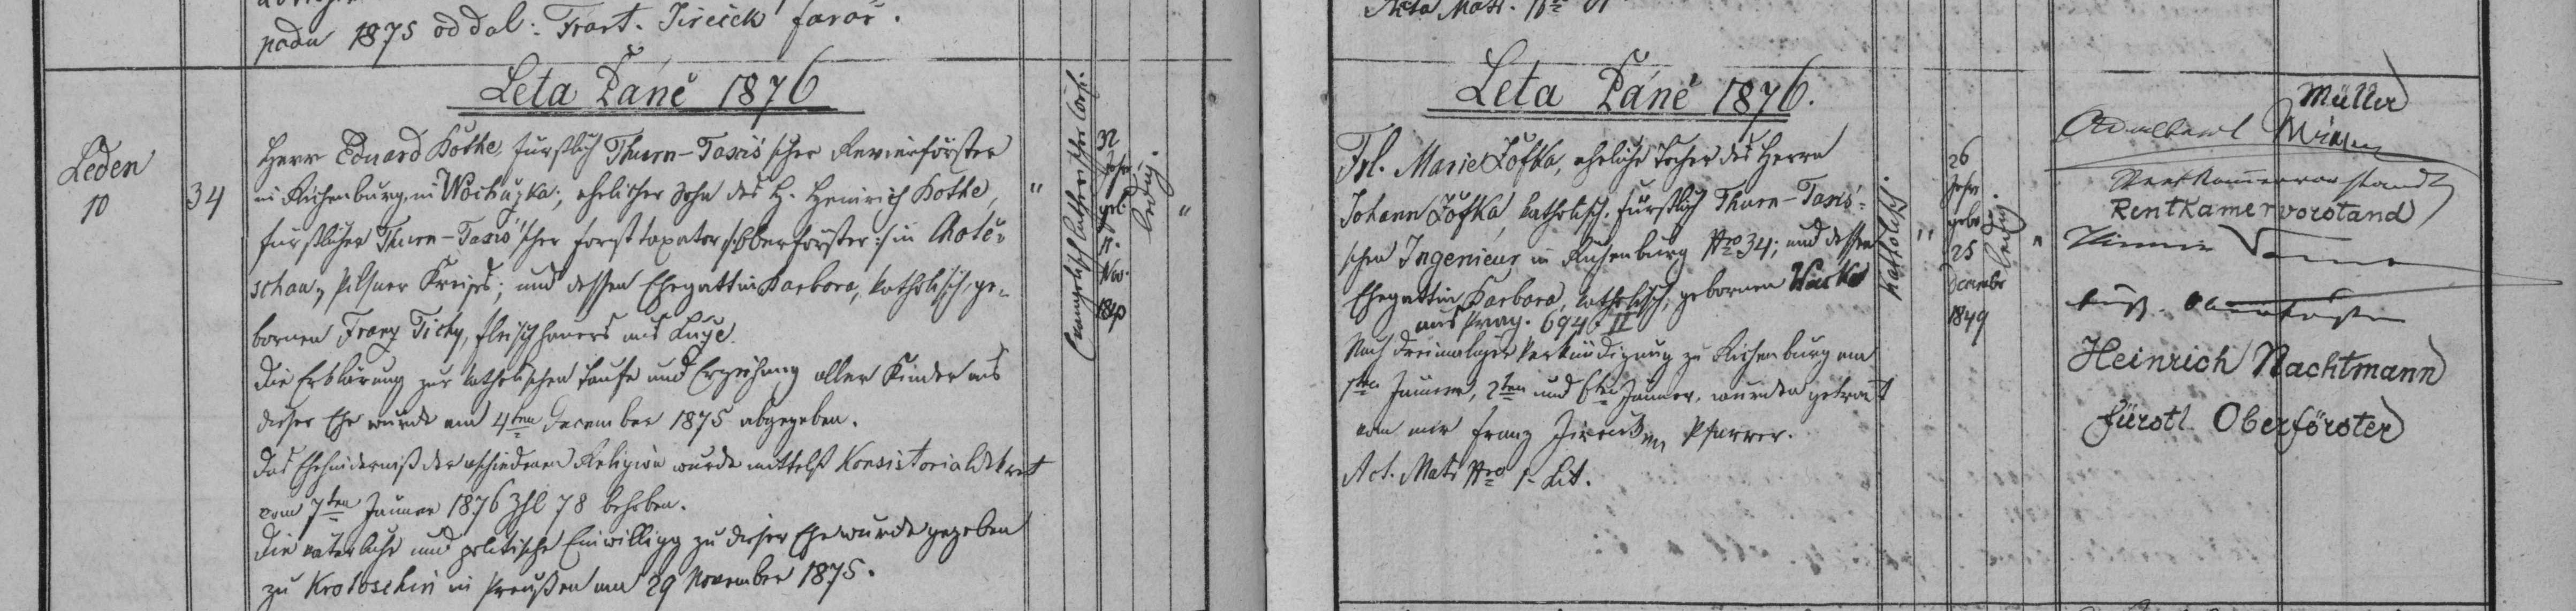 padu 1875 oddal: Frant. Jireček farář.
Leta Páně 1876
Leden
10
34
Herr Eduard Kothe, fürstlich Thurn-Taxis'scher Revierförster
in Richenburg, in Wochozka; ehelicher Sohn des H. Heinrich Kothe,
fürstlicher Thurn-Taxis'scher Forsttaxator /:Oberförster:/ in Chote-
schau, Pilsner Kreises; und dessen Ehegattin Barbora, katholisch, ge-
bornen Franz Tichy, Fleischhauers aus Luže.
Die Erklärung zur katholischen Taufe und Erziehung aller Kinder aus
dieser Ehe wurde am 4ten December 1875 abgegeben.
Das Ehehinderniß der verschiedenen Religion wurde mittelst Konsistorialdekret
vom 7ten Jänner 1876 Zhl 78 behoben.
Die väterliche und politische Einwilligg zu dieser Ehe wurde gegeben
zu Krotoschin in Preußen am 29 November 1875.
"
evangelisch lutherischer Conf.
32
Jahr
geb.
11.
Nov.
ledig.
"
Acta Matr.
Leta Páně 1876.
Frl. Marie Žofka, eheliche Tochter des Herrn
Johann Žofka, katholisch, fürstlich Thurn-Taxis-
schen Ingenieur in Richenburg Nro 34; und dessen
Ehegattin Barbora, katholisch, gebornen
aus Prag. 694 II
Nach dreimaliger Verkündigung zu Richenburg am
1ten Jänner, 2ten und 6ten Jänner, wurden getraut
von mir Franz Jireček Pfarrer.
Act. Matr Nro 1 Lit.
katholisch.
"
26
Jahr
gebor.
25
December
1849
ledig.
"
Müller
Adalbert
Rentkamervorstand
Rentkamervorstand
fürstl. Oberförster
Heinrich Nachtmann
fürstl. Oberförster